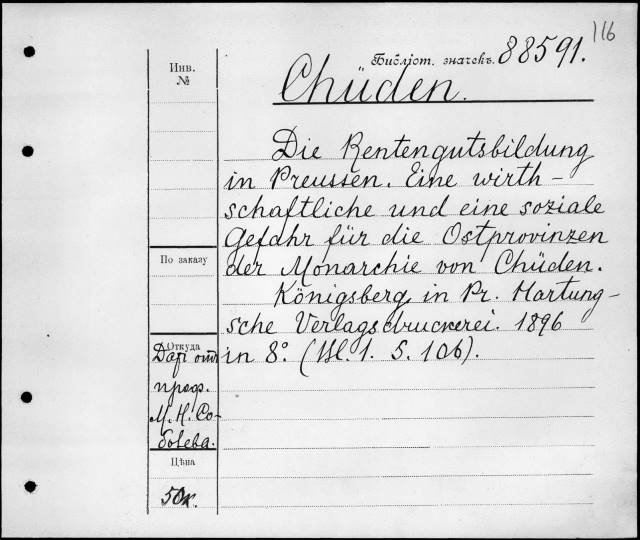 116
Библіот. значекъ. 88591.
Инв.
№
Chüden.
Die Rentengutsbildung
in Preussen. Eine wirth-
schaftliche und eine soziale
Gefahr für die Ostprovinzen
der Monarchie von Chüden.
Königsberg in Pr. Hartung-
sche Verlagsdruckerei. 1896
in 8°. (Bl. 1. S. 106).
По заказу
Откуда
Даръ отъ
проф.
М. Н. Со-
болева.
Цѣна
50к.